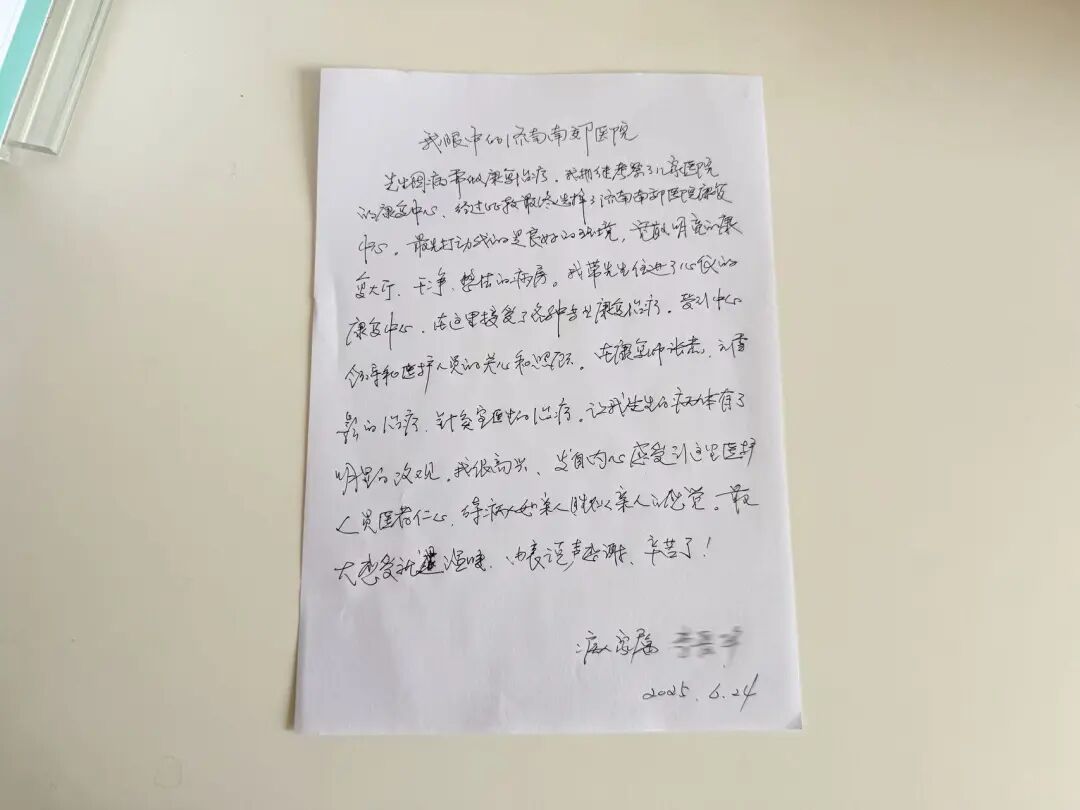 我眼中的济南南郊医院
先生因病需做康复治疗，我相继考察了几家医院
的康复中心，经过比较最终选择了济南南郊医院康复
中心。最先打动我的是良好的环境，宽敞明亮的康
复大厅、干净、整洁的病房。我带先生住进了心仪的
康复中心，在这里接受了各种专业康复治疗，受到中心
领导和医护人员的关心和照顾。在康复师张杰、
的治疗，针灸室医生的治疗。让我先生的病体有了
明显的改观。我很高兴、发自内心感受到这里医护
人员医者仁心，待病人如亲人胜似亲人的感觉。最
大感受就是温暖，由衷说声感谢、辛苦了！
病人家属
2025.6.24